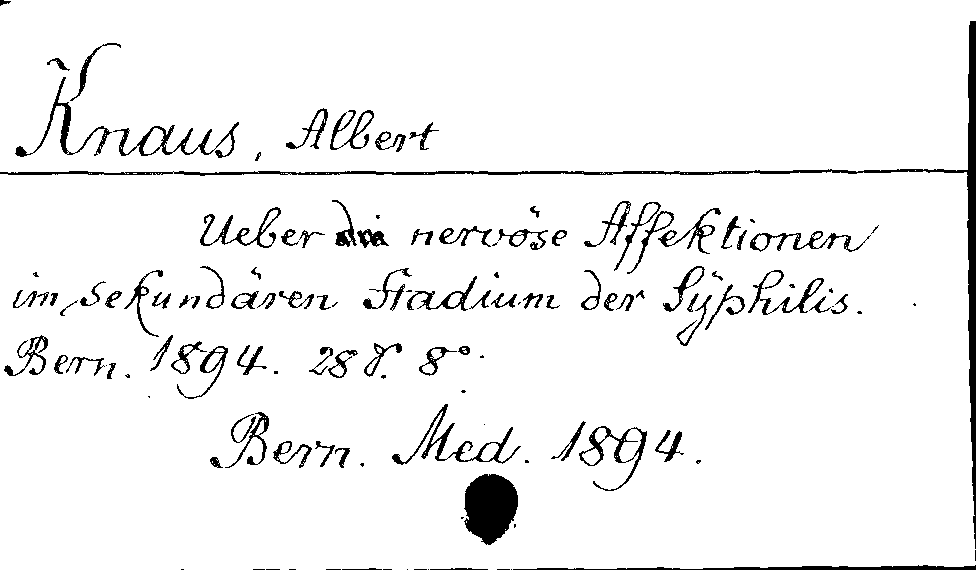 Knaus, Albert
Ueber die nervöse Affektionen
im sekundären Stadium der Syphilis.
Bern. 1894. 28 S. 8°.
Bern. Med. 1894.